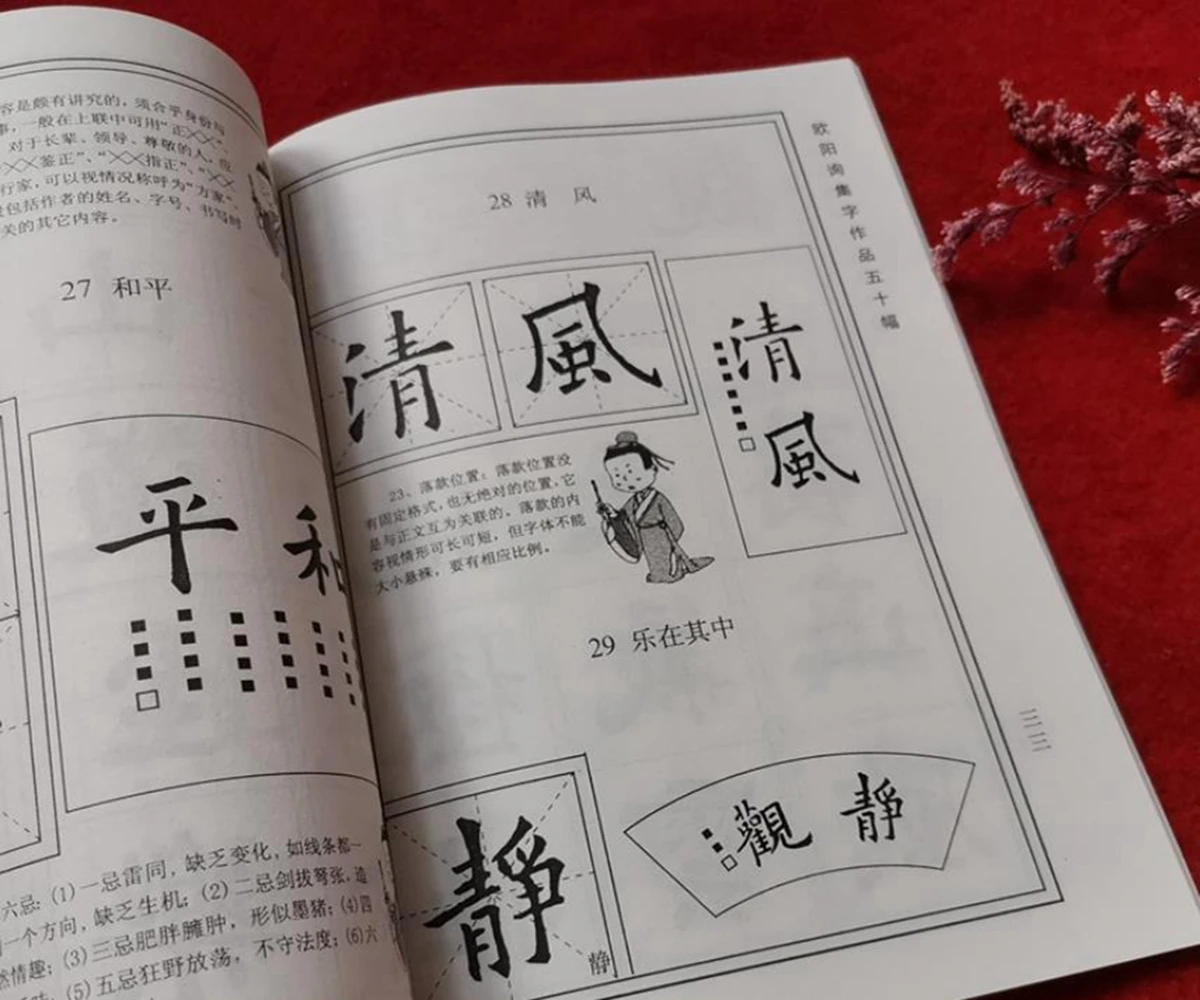 容是颇有讲究的，须合乎身份与
事，一般在上联中可用“正××”、
对于长辈、领导、尊敬的人，应
××鉴正”、“××指正”、“××
行家，可以视情况称呼为“方家”、
包括作者的姓名、字号、书写时
关的其它内容。
27 和平
平 和
六忌：(1)一忌雷同，缺乏变化，如线条都一
一个方向，缺乏生机；(2)二忌剑拔弩张，造
然情趣；(3)三忌肥胖臃肿，形似墨猪；(4)四
(5)五忌狂野放荡，不守法度；(6)六
28 清 风
清 風
清
風
23、落款位置：落款位置没
有固定格式，也无绝对的位置，它
是与正文互为关联的。落款的内
容视情形可长可短，但字体不能
大小悬殊，要有相应比例。
29 乐在其中
靜
静
觀 靜
欧阳询集字作品五十幅
三三